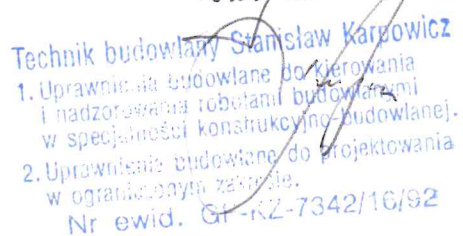 Technik budowlany Stanisław Karpowicz
1. Uprawnienia budowlane do kierowania
i nadzorowania robotami budowlanymi
w specjalności konstrukcyjno-budowlanej.
2. Uprawnienia budowlane do projektowania
w ograniczonym zakresie.
Nr ewid. GP-KZ-7342/16/92